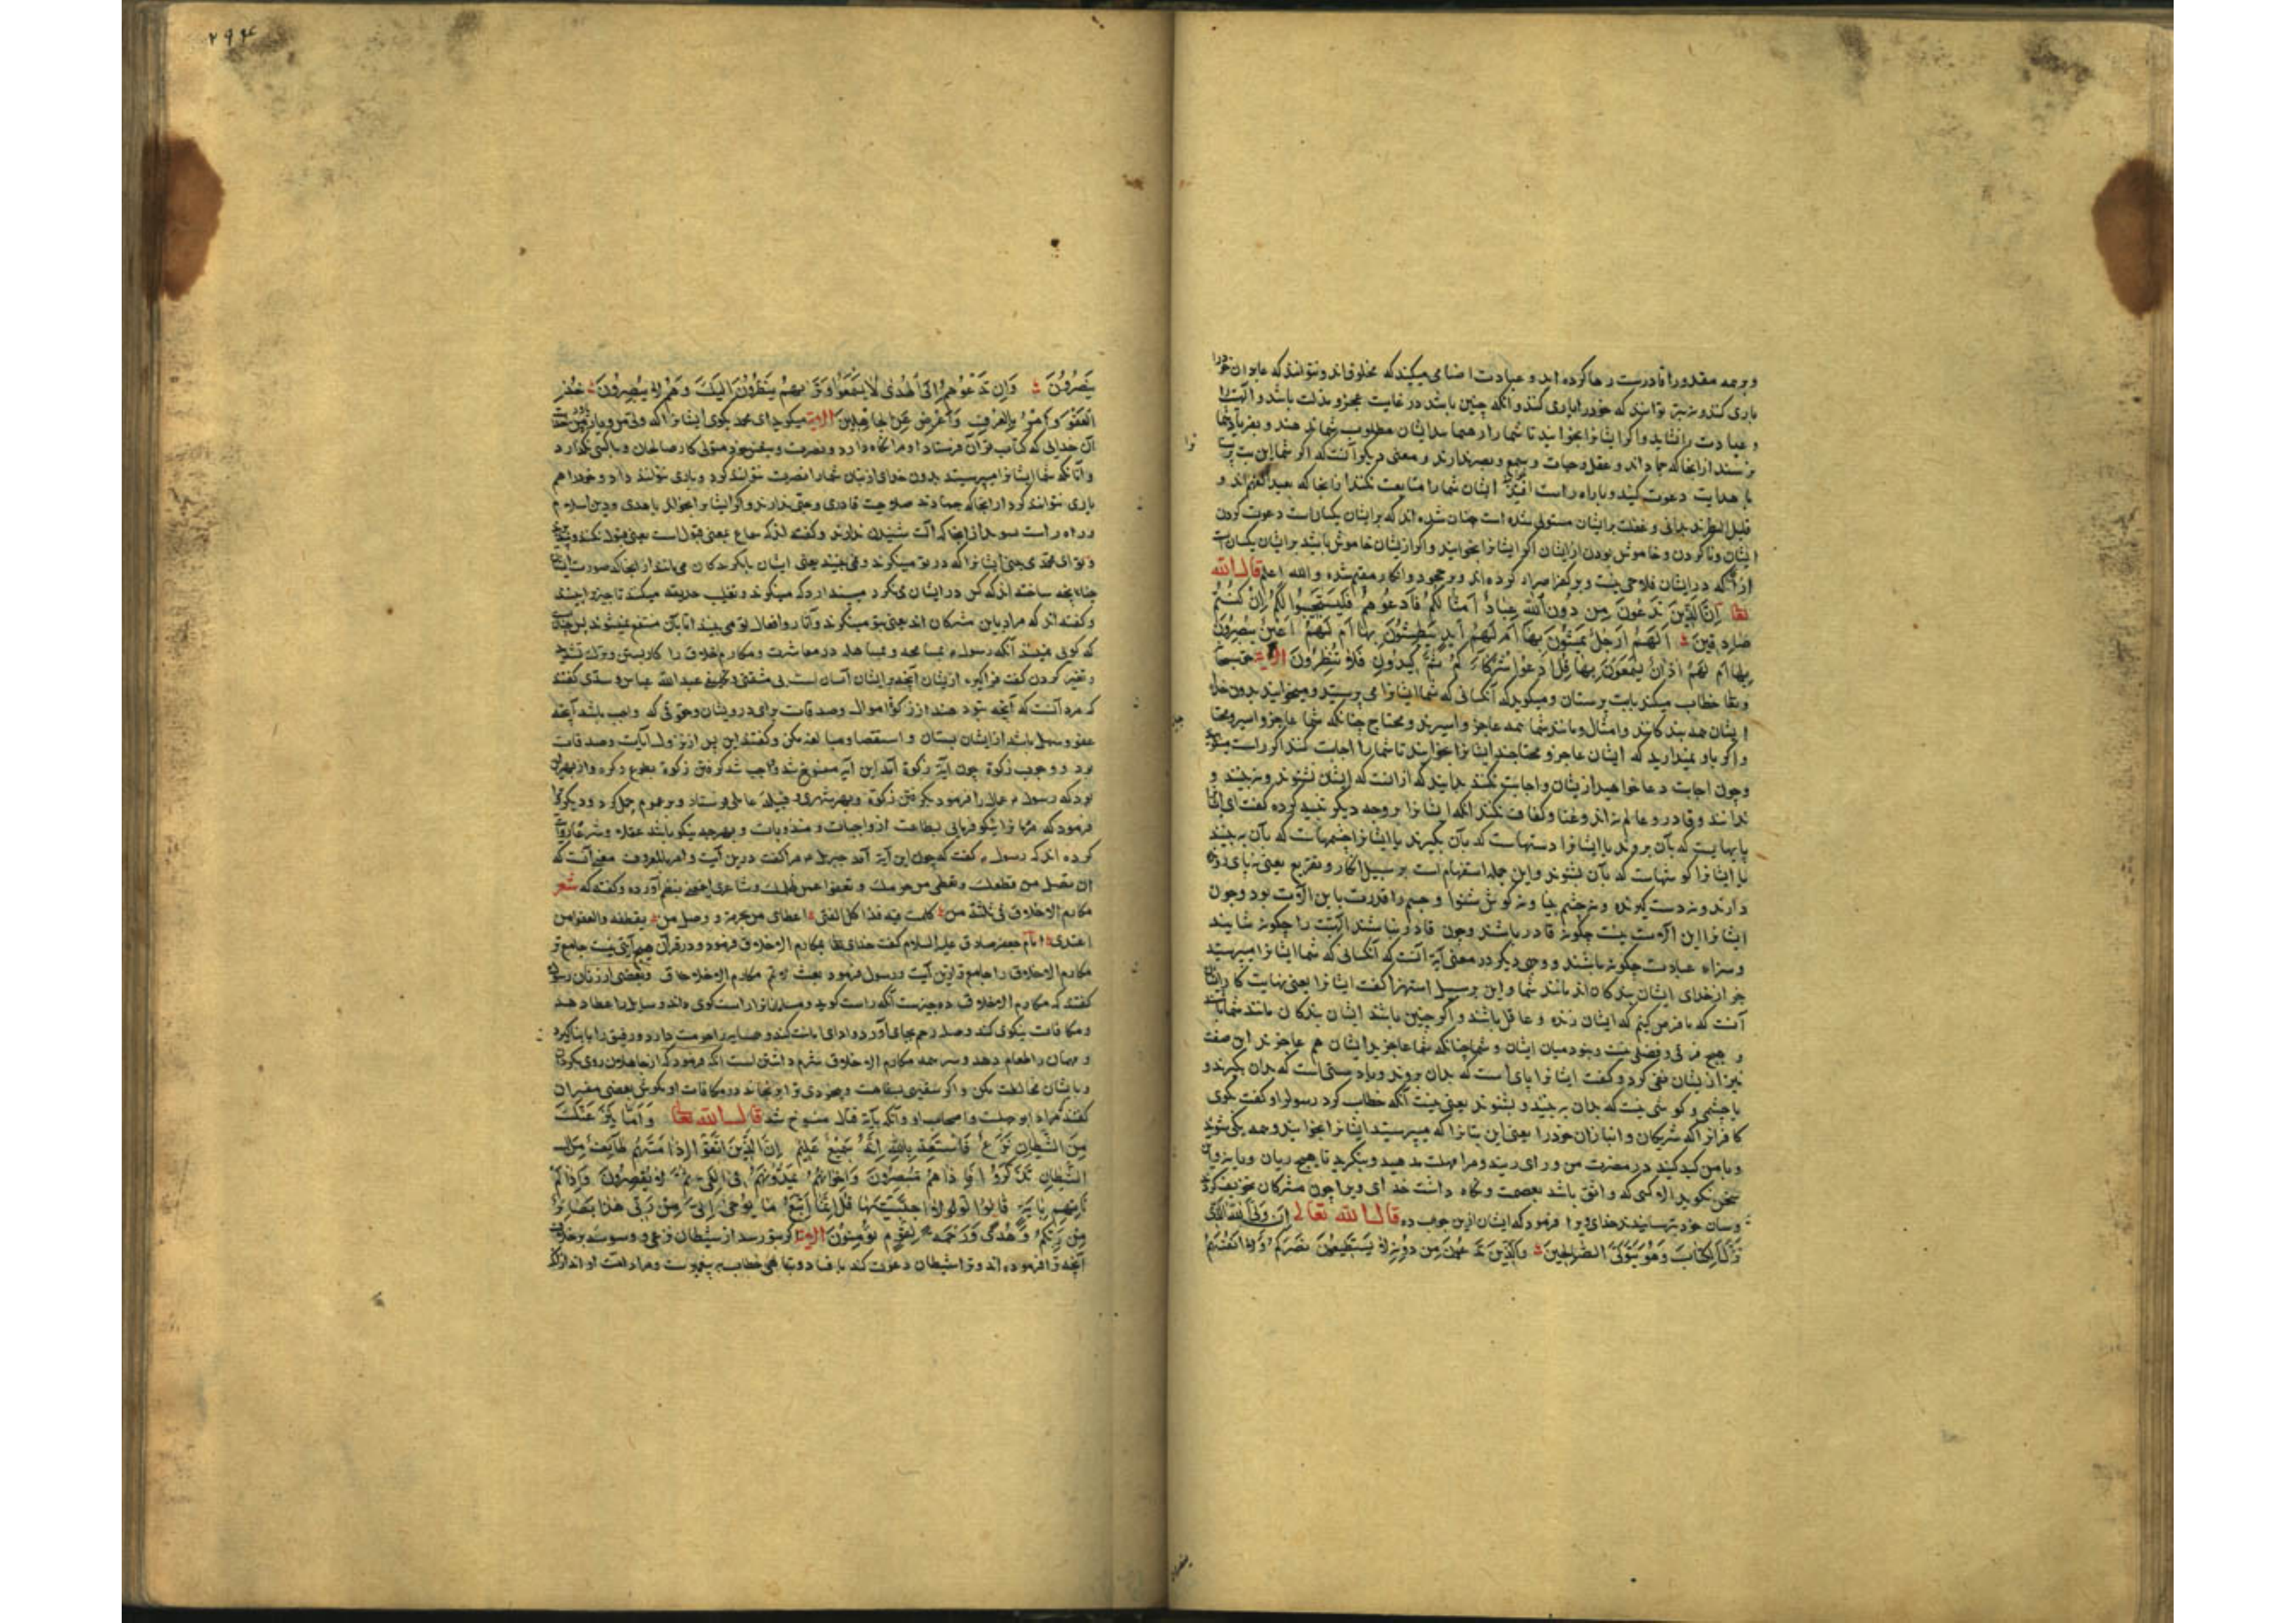 و بر همه مقدورا قادرست رها کرده اند و عبادت اصنامی میکنند که مخلوق اند و نتوانند که عابدان خود را
یاری کنند و نیز نتوانند که خود را یاری کنند و آنکه چنین باشد در غایت عجز و مذلت باشد و الهیت را
و عبادت را نشاید و اگر ایشانرا بخوانید تا شما را رهنما بدایشان مطلوب شما ندهند و بفریاد شما
نرسند از انجا که جماد اند و عقل و حیات و سمع و بصر ندارند و معنی دیگر آنست که اگر شما این بت پرستان
با هدایت دعوت کنید و با راه راست ایشان شما را متابعت نکنند از انجا که بعید الفهم اند و
قلیل النظر نادانی و غفلت بر ایشان مستولی شده است چنان شده اند که بر ایشان یکسان است دعوت کردن
ایشان و ناکردن و خاموش بودن از ایشان اگر ایشانرا بخوانید و اگر از یشان خاموش باشید بر ایشان یکسان است
از آنکه در ایشان فلاحی نیست و بر کفر اصرار کرده اند و بر جحود و انکار مقیم شده والله اعلم قال الله
تعا اِنَّ الَّذِینَ تَدْعُونَ مِن دُونِ اللهِ عِبَادٌ اَمْثَالُکُمْ فَادْعُوهُمْ فَلْیَسْتَجِیبُوا لَکُمْ اِنْ کُنْتُمْ
صَادِقِینَ اَلَهُمْ اَرْجُلٌ یَمْشُونَ بِهَا اَمْ لَهُمْ اَیْدٍ یَبْطِشُونَ بِهَا اَمْ لَهُمْ اَعْیُنٌ یُبْصِرُونَ
بِهَا اَمْ لَهُمْ اٰذَانٌ یَسْمَعُونَ بِهَا قُلِ ادْعُوا شُرَکَاءَکُمْ ثُمَّ کِیدُونِ فَلَا تُنْظِرُونَ الایة حق سبحانه
و تعا خطاب میکند با بت پرستان و میگوید که آنکسانی که شما ایشانرا می پرستید و میخوانید بدون خدای
ایشان همه بندگانند و امثال و مانند شما همه عاجز و اسیرند و محتاج چنانکه شما عاجز و اسیر و محتاج
و اگر باور نمیدارید که ایشان عاجز و محتاجند ایشانرا بخوانید تا شما را اجابت کنند اگر راست میگویید
و چون اجابت دعا خواهید از یشان و اجابت نکنند بدانید که از انست که ایشان نشنوند و نبینند و
ندانند و قادر و عالم نه اند و غنا و کفاف نکنند آنکه ایشانرا بر وجه دیگر تنبیه کرده گفت ای ایشانرا
پایهاییست که بآن بروند یا ایشانرا دستهاست که بآن بگیرند یا ایشانرا چشمهاست که بآن به بینند
یا ایشانرا گوشهاست که بآن بشنوند و این جمله استفهام است بر سبیل انکار و تقریع یعنی نه پای رونده
دارند و نه دست گیرنده و نه چشم بینا و نه گوش شنوا و جسم را قدرت باین الات بود و چون
ایشانرا این الات نیست چگونه قادر باشند و چون قادر نباشند الهیت را چگونه شایند
و سزاء عبادت چگونه باشند و وجهی دیگر در معنی آیة آنست که آنکسانی که شما ایشانرا میپرستید
جز از خدای ایشان بندگان اند مانند شما و این بر سبیل استهزا گفت ایشانرا یعنی نهایت کار ایشان
آنست که ما فرض کنیم که ایشان زنده و عاقل باشند و اگر چنین باشند ایشان بندگان مانند شما باشند
و هیچ فرقی و فضلی نیست بوجود میان ایشان و شما چنانکه شما عاجزید ایشان هم عاجزند این صفت
نیز از یشان نفی کرد و گفت ایشانرا پای است که بدان بروند و یا دستی است که بدان بگیرند و
یا چشمی و گوشی نیست که بدان به بینند و بشنوند یعنی نیست آنگه خطاب کرد رسول او گفت بگوی
کافرانرا که شریکان و انبازان خود را یعنی این بتانرا که میپرستید ایشانرا بخوانید و همه یکی شوید
و با من کید کنید در مضرت من ورای زنید و مرا مهلت مدهید و بنگرید تا هیچ زیان
سخن نگوید الا کسی که واثق باشد بعصمت و نگاه داشت خدای ویرا چون مشرکان تخویف کردند
و بتان خود بترسانیدند خدای ویرا فرمود که ایشان را جواب ده قال الله تعالی اِنَّ وَلِیِّیَ اللهُ الَّذِی
نَزَّلَ الکِتَابَ وَهُوَ یَتَوَلَّی الصَّالِحِینَ وَالَّذِینَ تَدْعُونَ مِن دُونِهِ لَا یَسْتَطِیعُونَ نَصْرَکُمْ وَلَا اَنْفُسَهُمْ
۲۹۴
یَنْصُرُونَ وَاِن تَدْعُوهُمْ اِلَی الْهُدٰی لَا یَسْمَعُوا وَتَرٰیهُمْ یَنْظُرُونَ اِلَیْکَ وَهُمْ لَا یُبْصِرُونَ خُذِ
الْعَفْوَ وَأْمُرْ بِالْعُرْفِ وَاَعْرِضْ عَنِ الْجَاهِلِینَ الایة میگوید ای محمد بگوی ایشانرا که ولی من و یار من
آن خدایی که کتاب قرآن فرستاد او مرا نگاه دارد و نصرت و بنفس خود متولی کار صالحان و با کسی نگذارد
و آنانکه شما ایشانرا میپرستید بدون خدای از بتان شما را نصرت نتوانند کرد و یاری نتوانند داد و خود را هم
یاری نتوانند کرد از انجا که جمادند صلاحیت قادری و حیّی ندارند و اگر ایشانرا بخوانند با هدی و دین اسلام
و راه راست نشنوند از انجا که آلت شنیدن ندارند و گفته اند که سماع بمعنی قبول است یعنی قبول نکنند
و تو ای محمد می بینی ایشانرا که در تو مینگرند و نمی بینند یعنی ایشان بنگرندگان می مانند از انجا که صورت ایشان
چنان ساخته اند که کس در ایشان نگرد پندارد که مینگرند و تقلیب حدیقه میکنند تا چیزی ببینند
و گفته اند که مراد باین مشرکان اند یعنی بتو مینگرند و آثار و افعال تو می بینند اما بآن منتفع نمیشوند پس چنان
که گوئی نبینند آنکه رسول را بمسامحه و مساهله در معاشرت و مکارم اخلاق را کار بستن و ترک تشدید
و تغیر کردن گفت فراگیر از یشان آنچه بر ایشان آسان است بی مشقتی و تکلیفی عبدالله عباس و سدی گفتند
که مراد آنست که آنچه بتو دهند از زکوة اموال و صدقات برای درویشان و حقوقی که واجب باشد آنچه
عفو و سهل باشد از ایشان بستان و استقصا و مبالغه مکن و گفتند این پیش از نزول آیات و صدقات
بود و وجوب زکوة چون آیة زکوة آمد این آیه منسوخ شد و واجب شد گرفتن زکوة بطوع و کره و از بهر این
بود که رسول عمال را فرمود بگرفتن زکوة و بهر شهری و قبیلۀ عاملی فرستاد و بر عموم حمل کرد و دیگر
فرمود که مردمانرا نیکو فرمایی بطاعت از واجبات و مندوبات و بهرچه نیکو باشد عقلا و شرعا روایت
کرده اند که رسول گفت که چون این آیة آمد جبریل مرا گفت درین آیت و امر بالمعروف معنی آنست که
ان تصل من قطعک و تعطی من حرمک و تعفوا عمن ظلمک و شاعری این معنی بنظم آورده و گفته که شعر
مکارم الاخلاق فی ثلثة من کلمت فیه فذا کل الفتی اعطای من یحرمه و وصل من یقطعه والعفو عمن
اعتدی امام جعفر صادق علیه السلام گفت خدای تعا بمکارم الاخلاق فرمود و در قرآن هیچ آیتی نیست جامع تر
مکارم الاخلاق را جامع تر ازین آیت و رسول فرمود بعثت لاتم مکارم الاخلاق
گفتند که مکارم الاخلاق ده چیزست آنکه راست گوید و مسلمانانرا راست گوی داند و سایل را عطا دهد
و مکافات نیکوی کند و صلۀ رحم بجای آورد و ادای امانت کند و همسایه را حرمت دارد و رفیق را
و مهمان را طعام دهد و سر همه مکارم الاخلاق شرم داشتن است آنکه فرمود که از جاهلان روی بگردان
و با ایشان مخالطت مکن و اگر سفیهی بسفاهت و بیخودی ترا برنجاند در مکافات او مکوش بعضی مفسران
گفتند مراد ابوجهلست و اصحاب او و آنکه بآیة قتال منسوخ شد قال الله تعا وَاِمَّا یَنْزَغَنَّکَ
مِنَ الشَّیْطَانِ نَزْغٌ فَاسْتَعِذْ بِاللهِ اِنَّهُ سَمِیعٌ عَلِیمٌ اِنَّ الَّذِینَ اتَّقَوْا اِذَا مَسَّهُمْ طَائِفٌ مِنَ
الشَّیْطَانِ تَذَکَّرُوا فَاِذَا هُمْ مُبْصِرُونَ وَاِخْوَانُهُمْ یَمُدُّونَهُمْ فِی الْغَیِّ ثُمَّ لَا یُقْصِرُونَ وَاِذَا لَمْ
تَأْتِهِمْ بِاٰیَةٍ قَالُوا لَوْلَا اجْتَبَیْتَهَا قُلْ اِنَّمَا اَتَّبِعُ مَا یُوحٰی اِلَیَّ مِنْ رَبِّی هٰذَا بَصَائِرُ
مِنْ رَبِّکُمْ وَهُدًی وَرَحْمَةٌ لِقَوْمٍ یُؤْمِنُونَ الایة اگر بتو رسد از شیطان نزغی و وسوسه بر خلاف
آنچه ترا فرموده اند و ترا شیطان دعوت کند با فساد و تباهی خطاب به پیغمبرست و مراد امت او اند